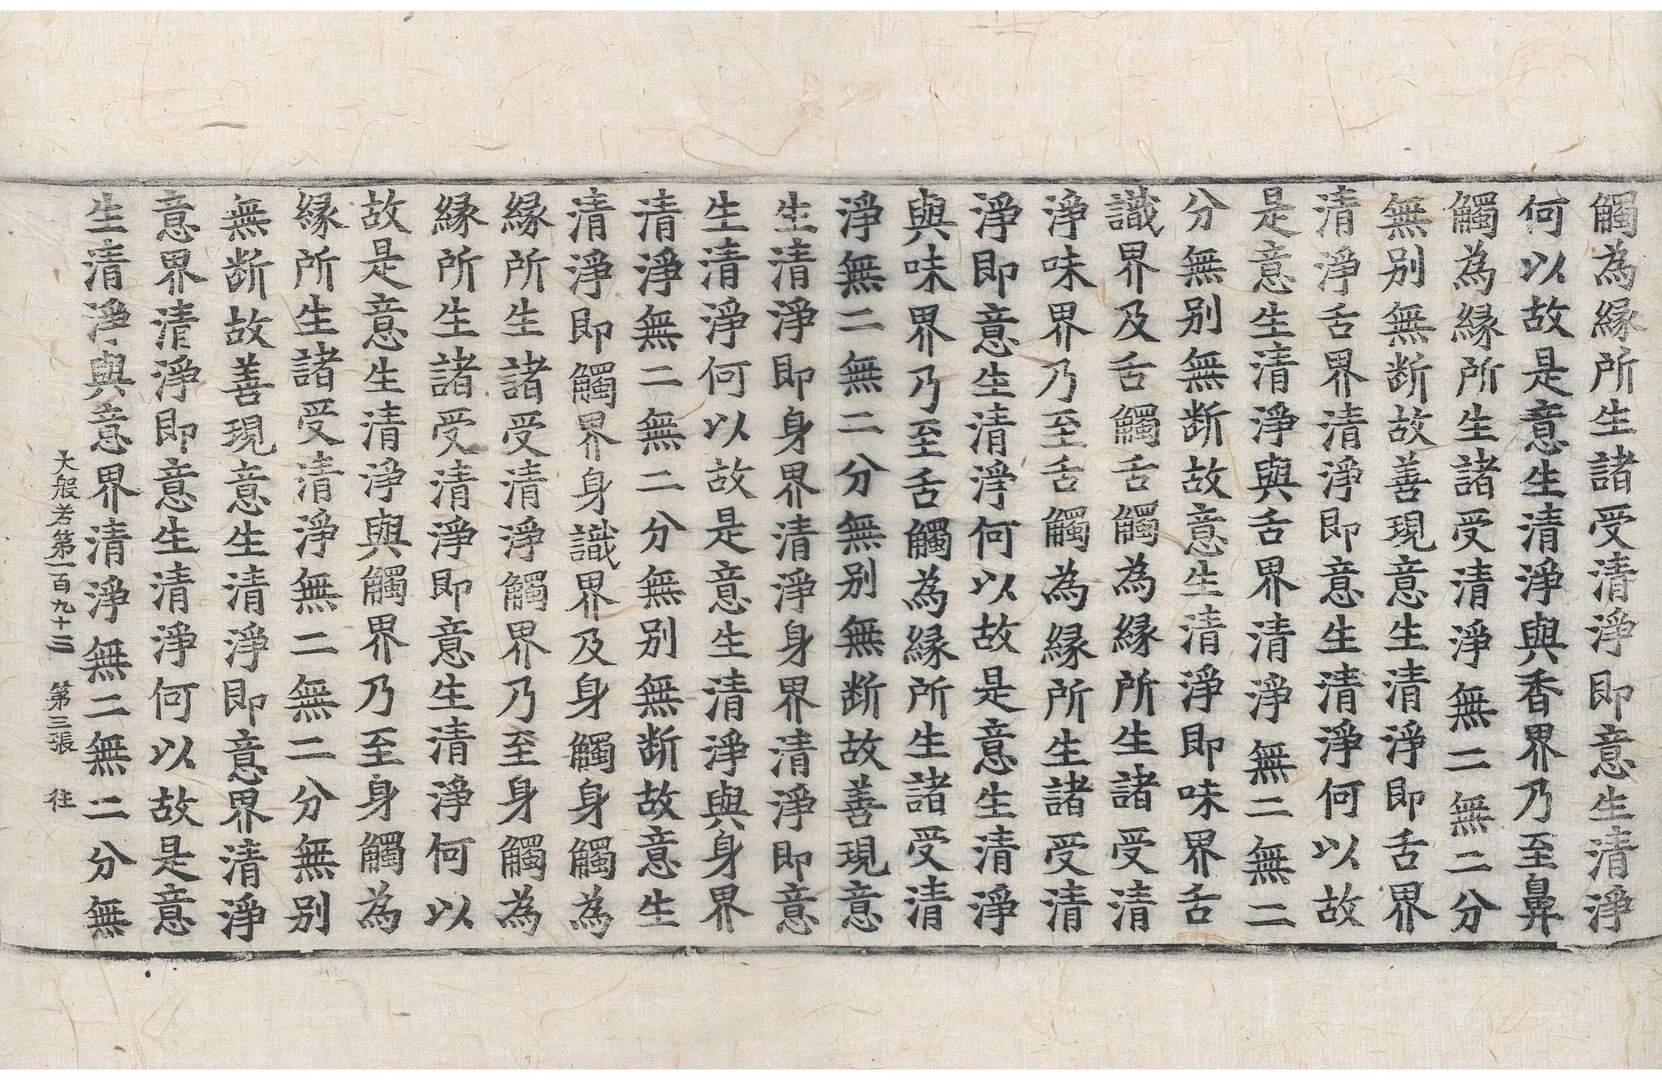 觸為縁所生諸受清淨即意生清淨
何以故是意生清淨與香界乃至鼻
觸為縁所生諸受清淨無二無二分
無别無断故善現意生清淨即舌界
清淨舌界清淨即意生清淨何以故
是意生清淨與舌界清淨無二無二
分無别無断故意生清淨即味界舌
識界及舌觸舌觸為縁所生諸受清
淨味界乃至舌觸為縁所生諸受清
淨即意生清淨何以故是意生清淨
與味界乃至舌觸為縁所生諸受清
淨無二無二分無别無断故善現意
生清淨即身界清淨身界清淨即意
生清淨何以故是意生清淨與身界
清淨無二無二分無别無断故意生
清淨即觸界身識界及身觸身觸為
縁所生諸受清淨觸界乃至身觸為
縁所生諸受清淨即意生清淨何以
故是意生清淨與觸界乃至身觸為
縁所生諸受清淨無二無二分無别
無断故善現意生清淨即意界清淨
意界清淨即意生清淨何以故是意
生清淨與意界清淨無二無二分無
大般若第一百九十三 第三張 往